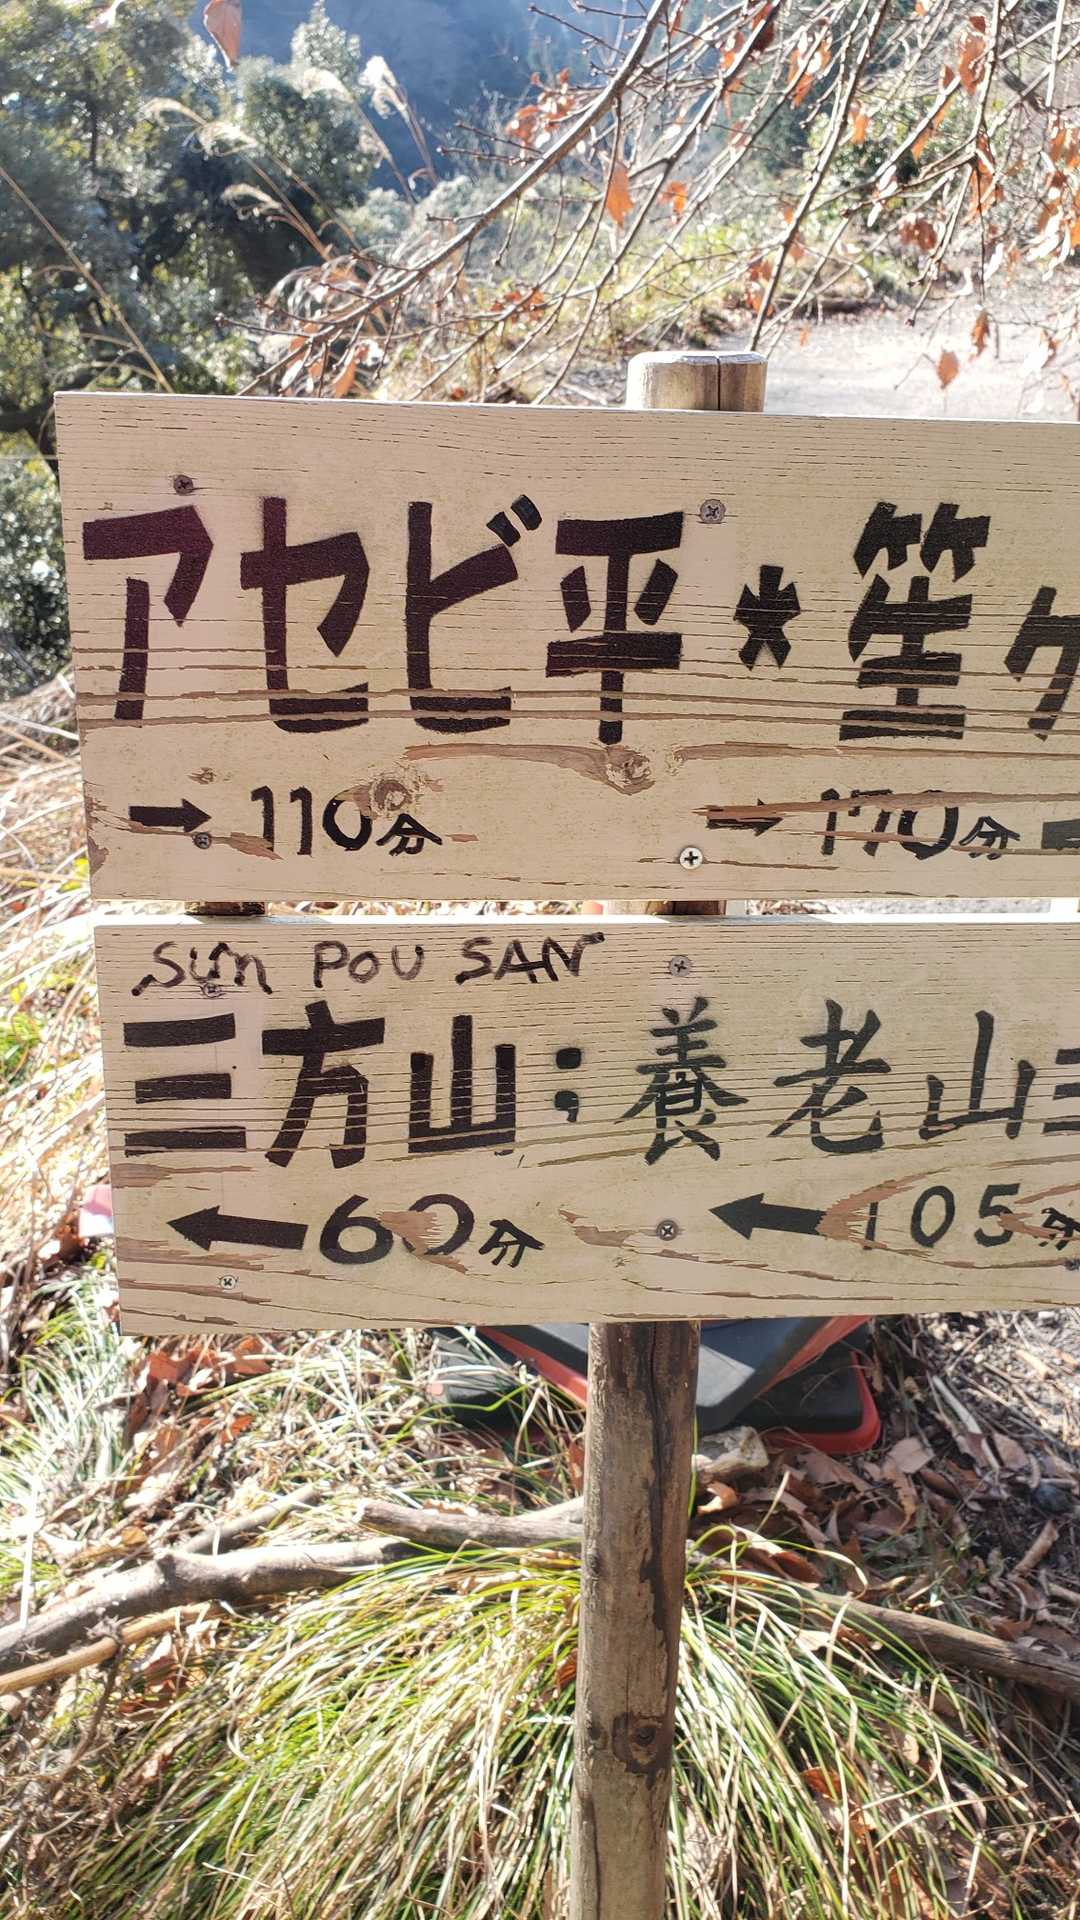 アセビ平*笙ケ
→110分 →170分
SUN POU SAN
三方山;養老山三
←60分 ←105分